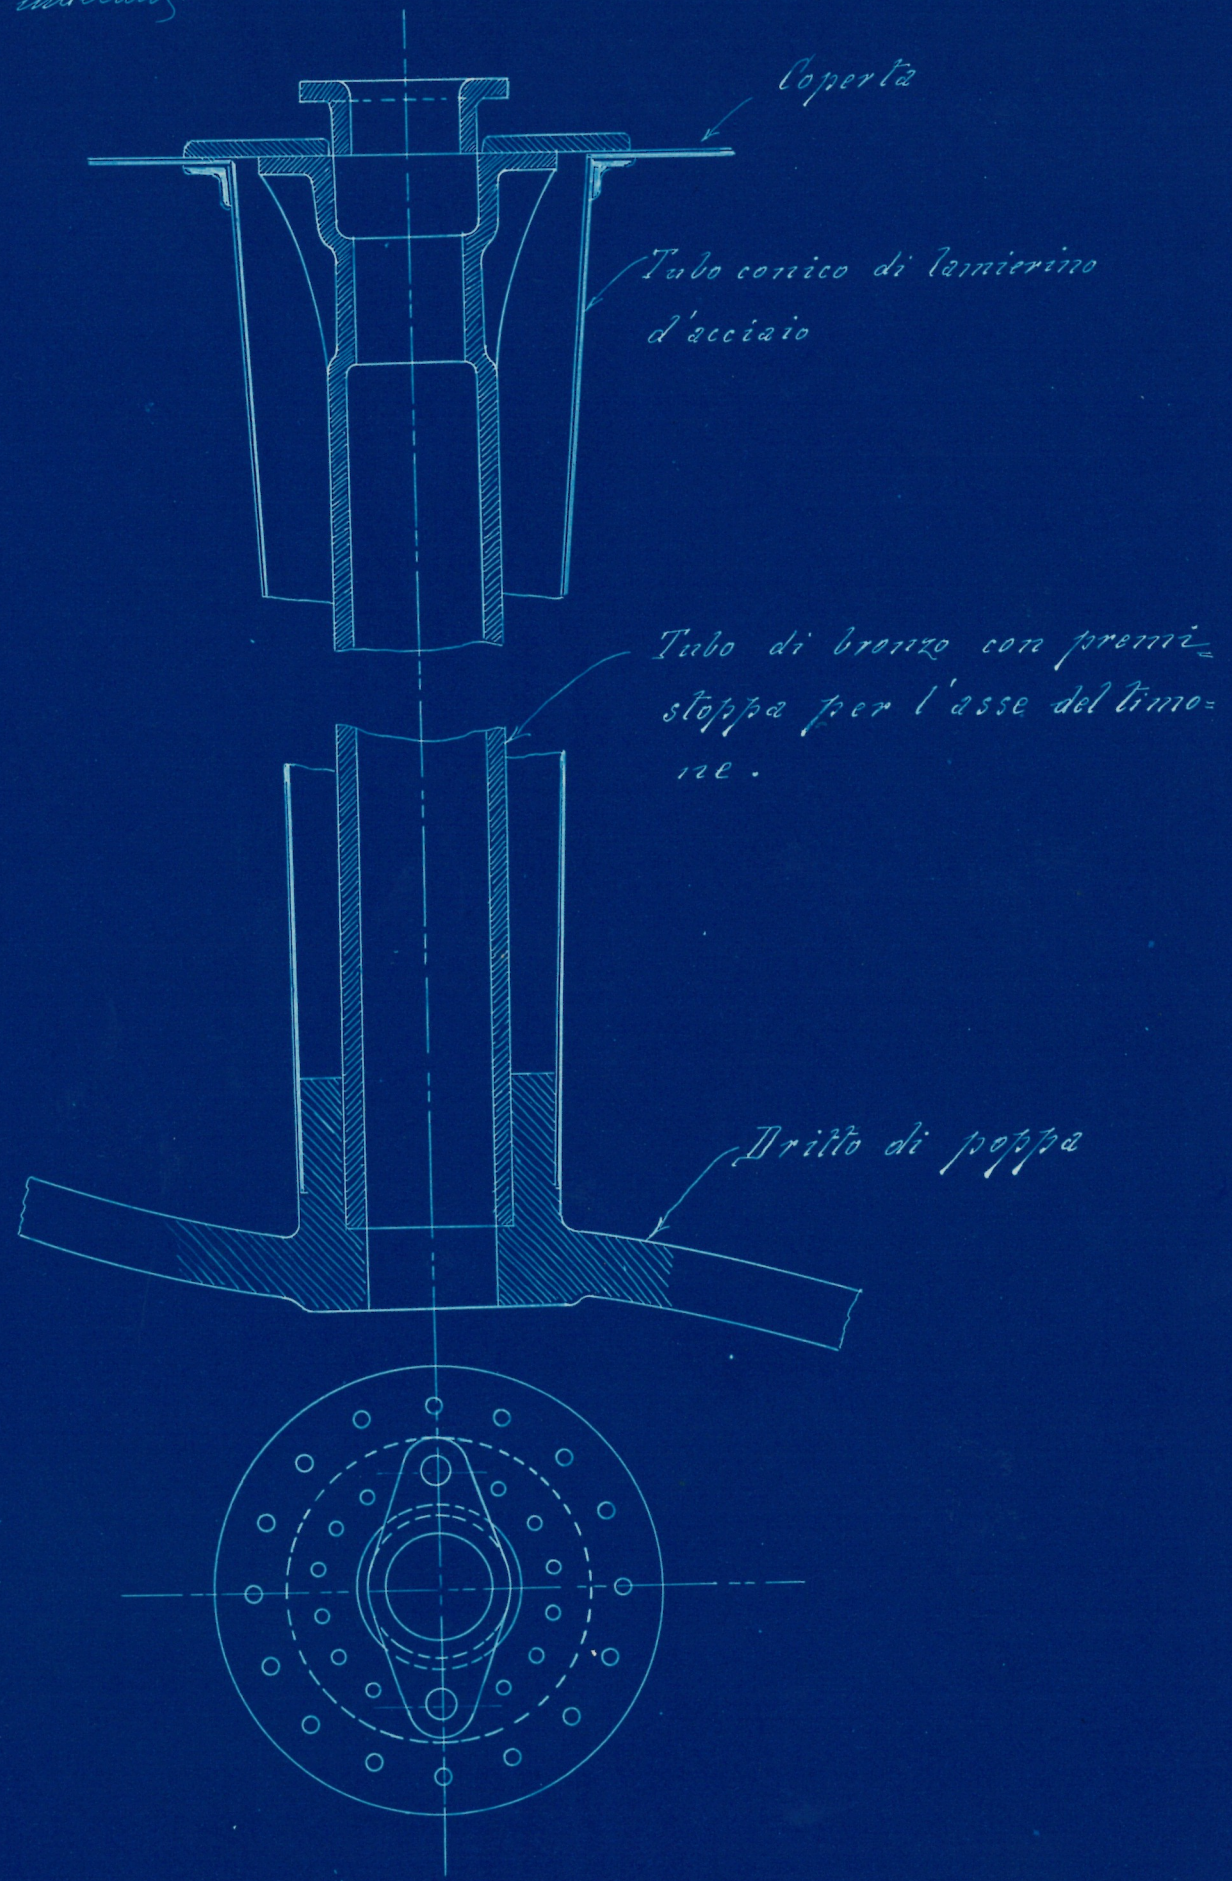 Coperta
Tubo conico di lamierino
d'acciaio
Tubo di bronzo con premi=
stoppa per l'asse del timo=
ne.
Dritto di poppa